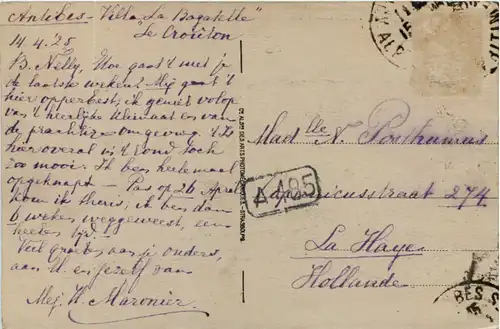 Antibes - Villa "La Bagatelle"
"Le Croûton
14.4.'25
B. Nelly, Hoe gaat 't met je
de laatste weken? Mij gaat 't
hier opperbest; ik geniet volop
van 't heerlijke klimaat en van
de prachtige omgeving. 't Is
hier overal in 't rond toch
zoo mooi. Ik ben heelemaal
opgeknapt - Pas op 26 April
kom ik thuis, ik ben dan
6 weken weggeweest, een
heele tijd.
Veel groeten aan je ouders,
aan U. en jezelf van
Mej. H. Maronier.
Madlle N. Posthumus
straat 274
La Haye
Hollande
A 495